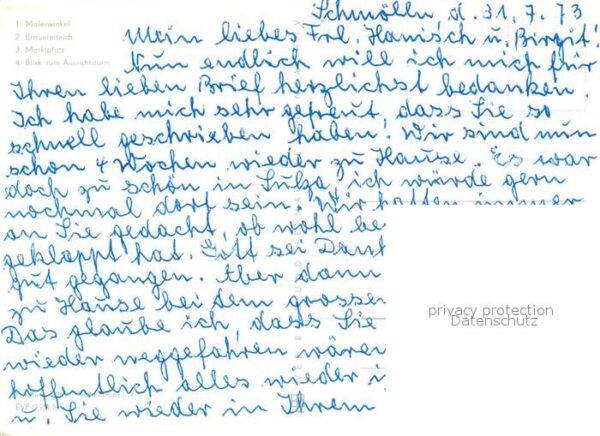 Schmölln, d. 31. 7. 73
1. Malerwinkel
2. Brauereiteich
3. Marktplatz
4. Blick zum Aussichtsturm
Mein liebes Frl. Hanisch u. Birgit!
Nun endlich will ich mich für
Ihren lieben Brief herzlichst bedanken.
Ich habe mich sehr gefreut, dass Sie so
schnell geschrieben haben. Wir sind nun
schon 4 Wochen wieder zu Hause. Es war
doch zu schön in Sulza, ich würde gern
nochmal dort sein. Wir hatten immer
an Sie gedacht, ob wohl
geklappt hat. Gott sei Dank
gut gegangen. Aber dann
zu Hause bei dem grossen
Das glaube ich, dass Sie
wieder weggefahren wären
hoffentlich alles wieder
u. Sie wieder in Ihrem
privacy protection
Datenschutz